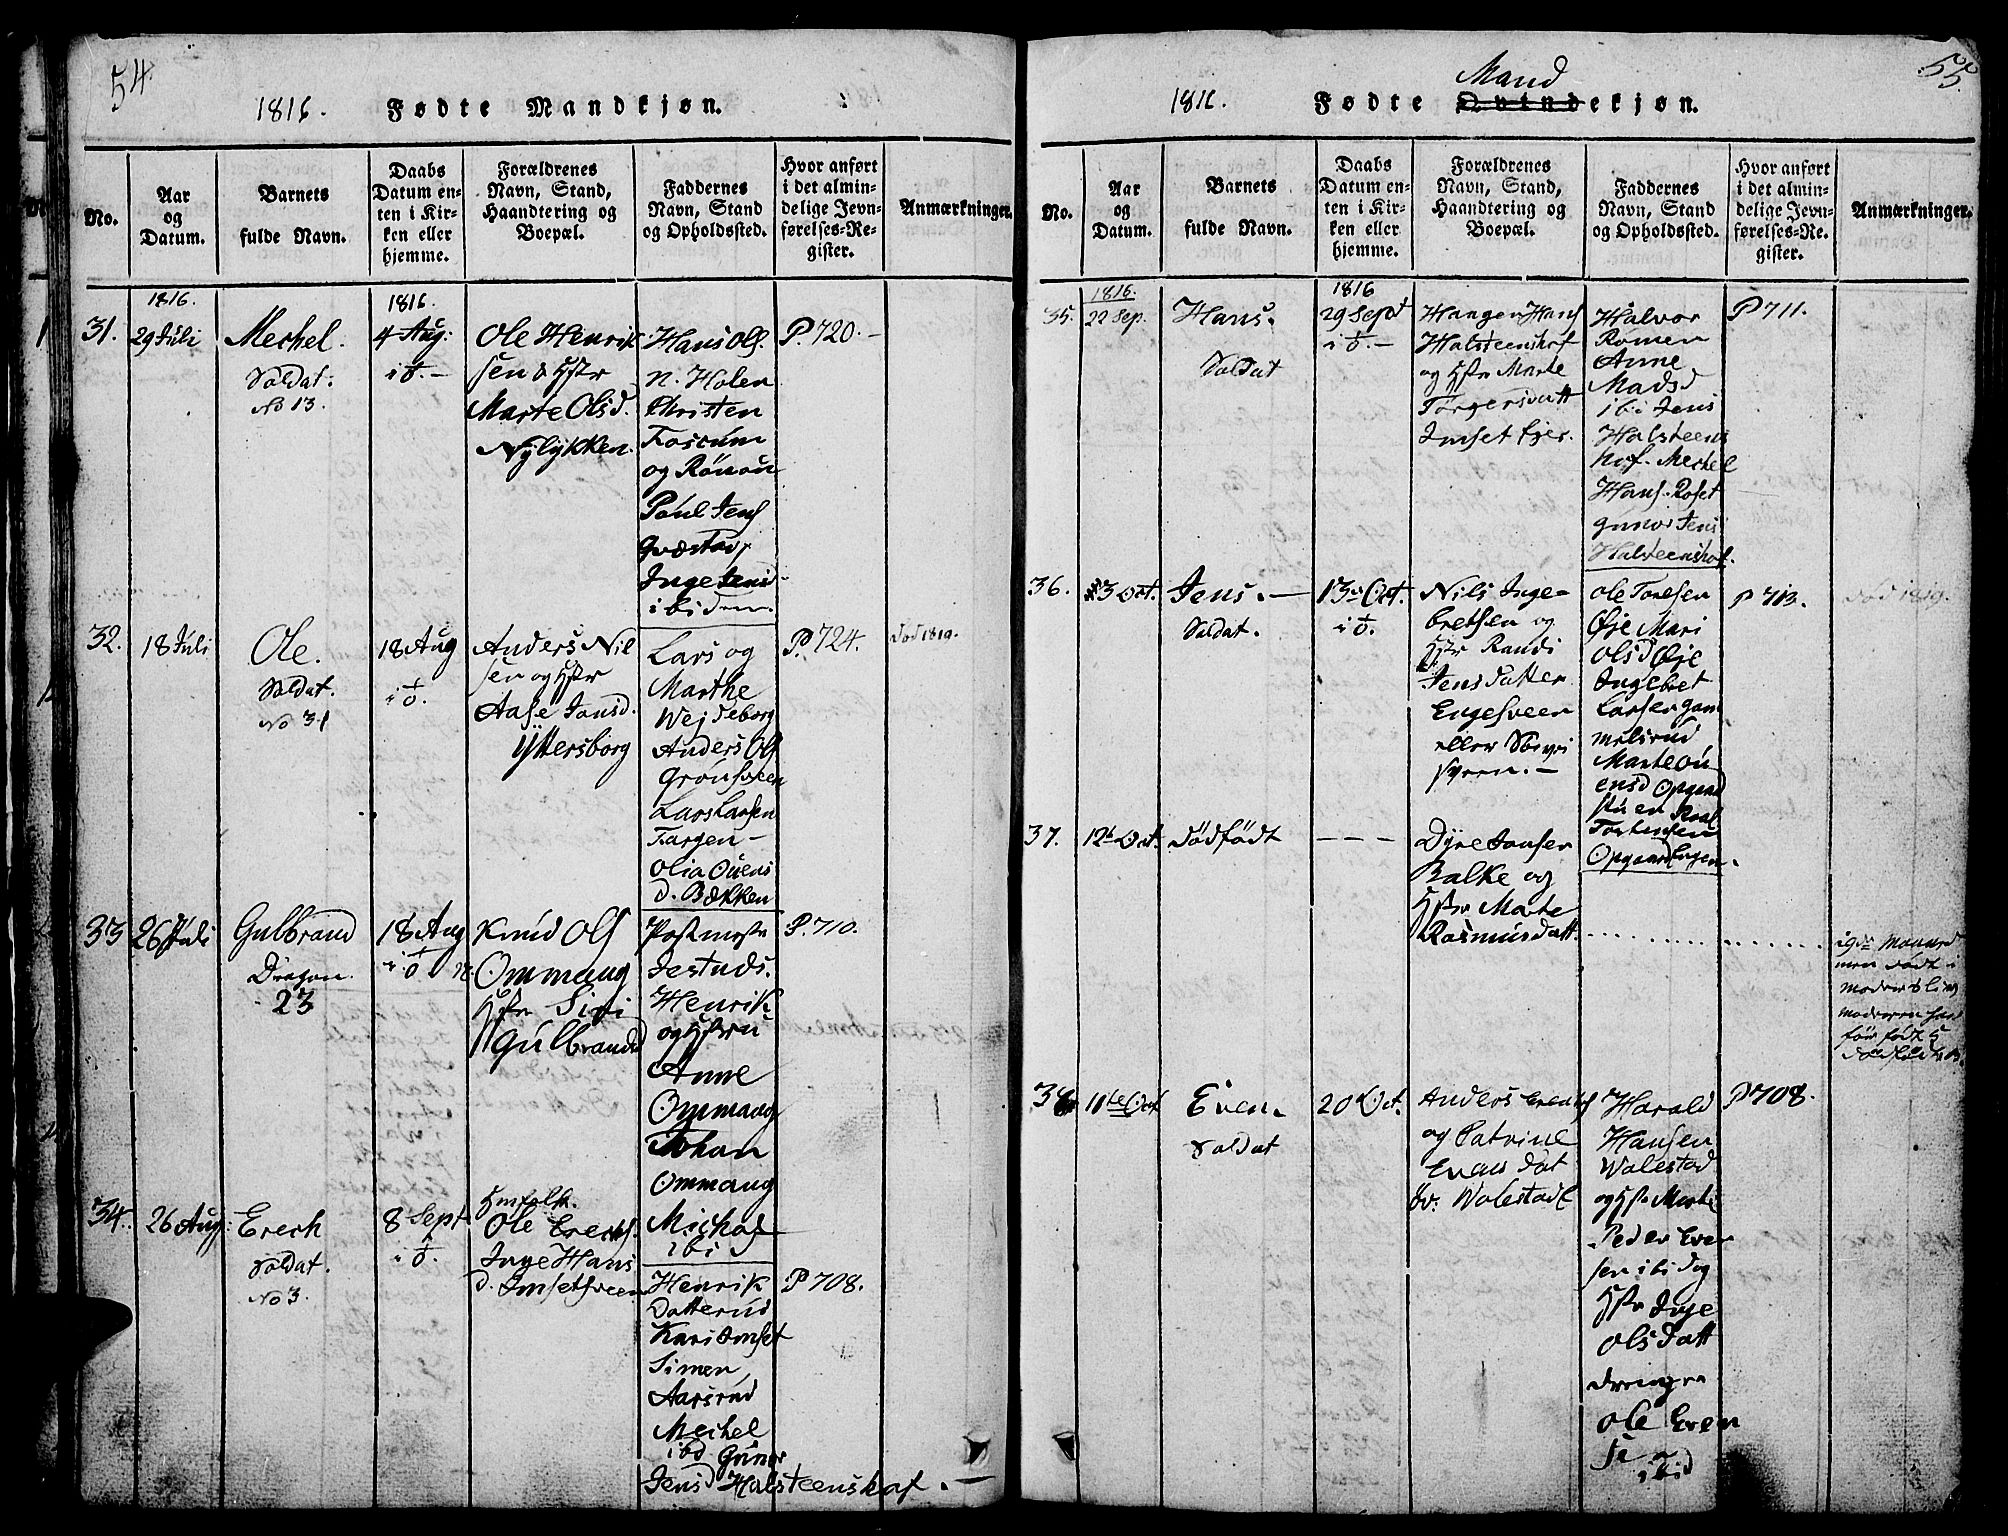 54.
1816. Fødte Mandkjøn.
No.
Aar
og
Datum.
Barnets
fulde Navn.
Daabs
Datum en-
ten i Kir-
ken eller
hjemme.
Forældrenes
Navn, Stand,
Haandtering og
Boepæl.
Faddernes
Navn, Stand
og Opholdssted.
Hvor anført
i det almin-
delige Jevn-
førelses-Re-
gister.
Anmærkninger.
31.
1816.
29 Juli
Mechel.
Soldat.
No 13.
1816.
4 Aug:
Ole Henrik
sen & Hstr
Marte Olsd.
Nylykken.
Hans Ols
n. Holen
Christen
Foscum
og Rønou
Poul Jens
Græstad,
Inge Jensd
ibidem.
P. 720. -
32.
18 Juli
Ole.
Soldat.
No 31
18 Aug
Anders Nil
sen og Hstr
Aase Jonsd.
Yttersborg
Lars og
Marthe
Wejdeborg
Anders Ols
Grønsveen
Lars Larsen
Fargen -
Olia Ouens
d. Bækken
P. 724.
død 1819.
33
26 Juli
Gulbrand
Dragon.
23
18 Aug
Knud Ols
Ommang
Hstr Siri
Gulbrandsd
Postmestr
Jestuds.
Henrik
og Hstru
Anne
Ommang
Johan
Ommang
Michal
ibid
P. 710.
34.
26 Aug:
Erech
Soldat.
No 3.
8 Sept
Hmfolk.
Ole Erechs.
Inge Hans
d. Imsetsveen
Henrik
Datterud
Kari Imset
Simen
Aarsrud
Mechel
ibd Gunor
Jensd Halsteenshof. -
P 708.
55.
Mand
1816. Fødte Qvindekjøn.
No.
Aar
og
Datum.
Barnets
fulde Navn.
Daabs
Datum en-
ten i Kir-
ken eller
hjemme.
Forældrenes
Navn, Stand,
Haandtering og
Boepæl.
Faddernes
Navn, Stand
og Opholdssted.
Hvor anført
i det almin-
delige Jevn-
førelses-Re-
gister.
Anmærkninger.
35.
1816.
22 Sep.
Hans.
Soldat
1816
29 Sept
Haagen Hans
Halsteenshof
og Hstr Marte
Torgersdatt
Imset Ejer.
Halvor
Romen
Anne
Madsd
ibi Jens
Halsteens
hof. Mechel
Hans. Roset
Gunor Jens
Halsteenshof.
P 711.
36.
3 Oct.
Jens. -
Soldat.
13 Oct.
Nils Inge-
bretsen og
Hstr Randi
Jensdatter
Engesveen
eller
Ole Toresen
Øje Mari
Olsd Øje
Ingebret
Larsen Gam
melsrud
Marte Ou
ensd Opgaard
stuen
Torstensen
Opgaard Eugen.
P 713.
død 1819.
37.
12te Oct.
Dødfødt
- - -
Dyre Jonsen
Balke og
Hstr Marte
Rasmusdatt.
men født i
moderen har
før født 5
dødfødte B.
38
11te Oct
Even.
Soldat
20 Oct.
Anders Evens
og Catrine
Evans dat
Wolestad
Harald
Hansen
Wolestad
og Hstr Marte
Peder Even
sen ibid og
Hstr Inge
Olsdatt
Ole Even
sen
ibid
P 708.